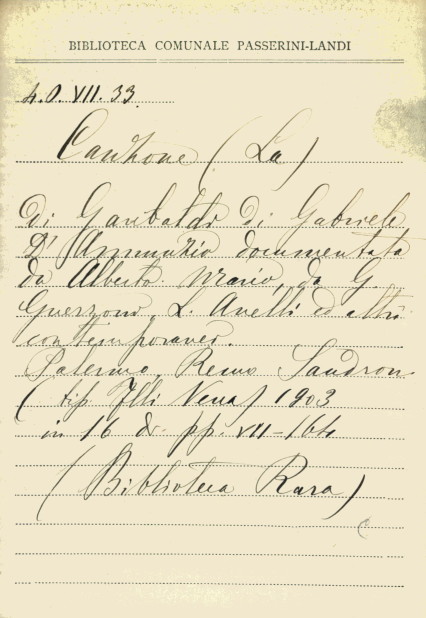 BIBLIOTECA COMUNALE PASSERINI-LANDI
4.O.VII.33
Canzone (La)
di Garibaldi di Gabriele
D'Annunzio documentata
da Alberto Mario, da G.
Guerzoni, L. Anelli ed altri
contemporanei.
Palermo, Remo Sandron
(tip. Flli Vena) 1903
in 16 di pp. VII-164
(Biblioteca Rara)